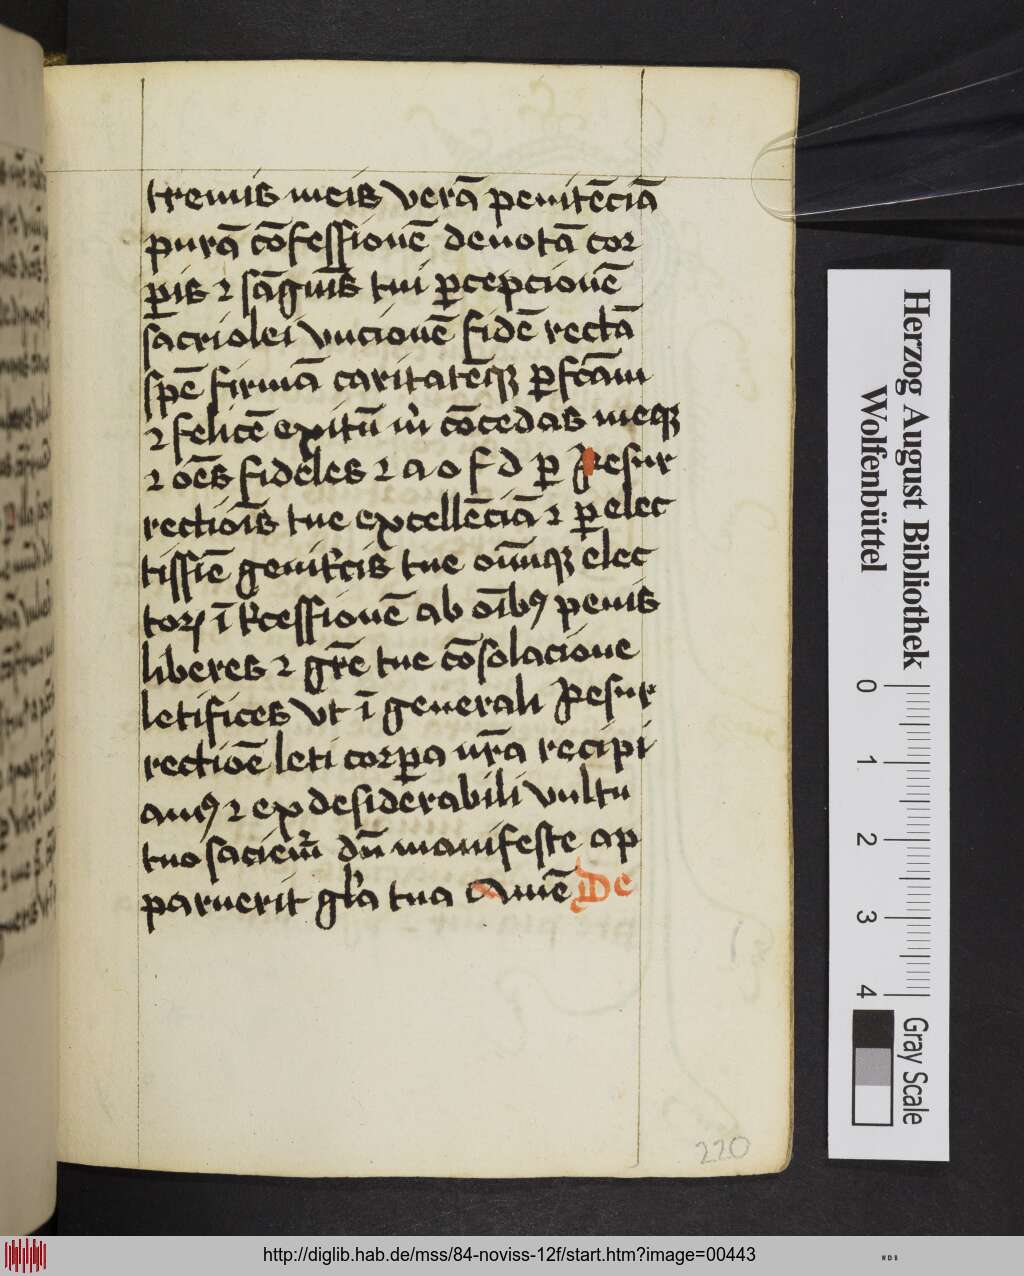 tremis meis verā penitēciā
purā cōfessionē deuotā cor
ꝑis ⁊ sāguīs tui ꝑcepcionē
sacriolei vncionē fidē rectā
spē firmā caritatēqꝫ ꝑfcām
⁊ felicē exitū m̄ cōcedas meqꝫ
⁊ oēs fideles ⁊ a o f d ꝑ Resur
rectiōis tue excellēciā ⁊ ꝑ elec
tissiē genitͥcis tue oīuqꝫ elec
torꝝ ītͥcessionē ab oībꝰ penis
liberes ⁊ gr̄e tue cōsolacione
letifices vt ī generali Resur
rectiōe leti corꝑa nr̄a recipi
amꝰ ⁊ ex desiderabili vultu
tuo saciem̄ dū manifeste ap
paruerit gl̄a tua Amē De
220
Herzog August Bibliothek
Wolfenbüttel
0 1 2 3 4
Gray Scale
http://diglib.hab.de/mss/84-noviss-12f/start.htm?image=00443